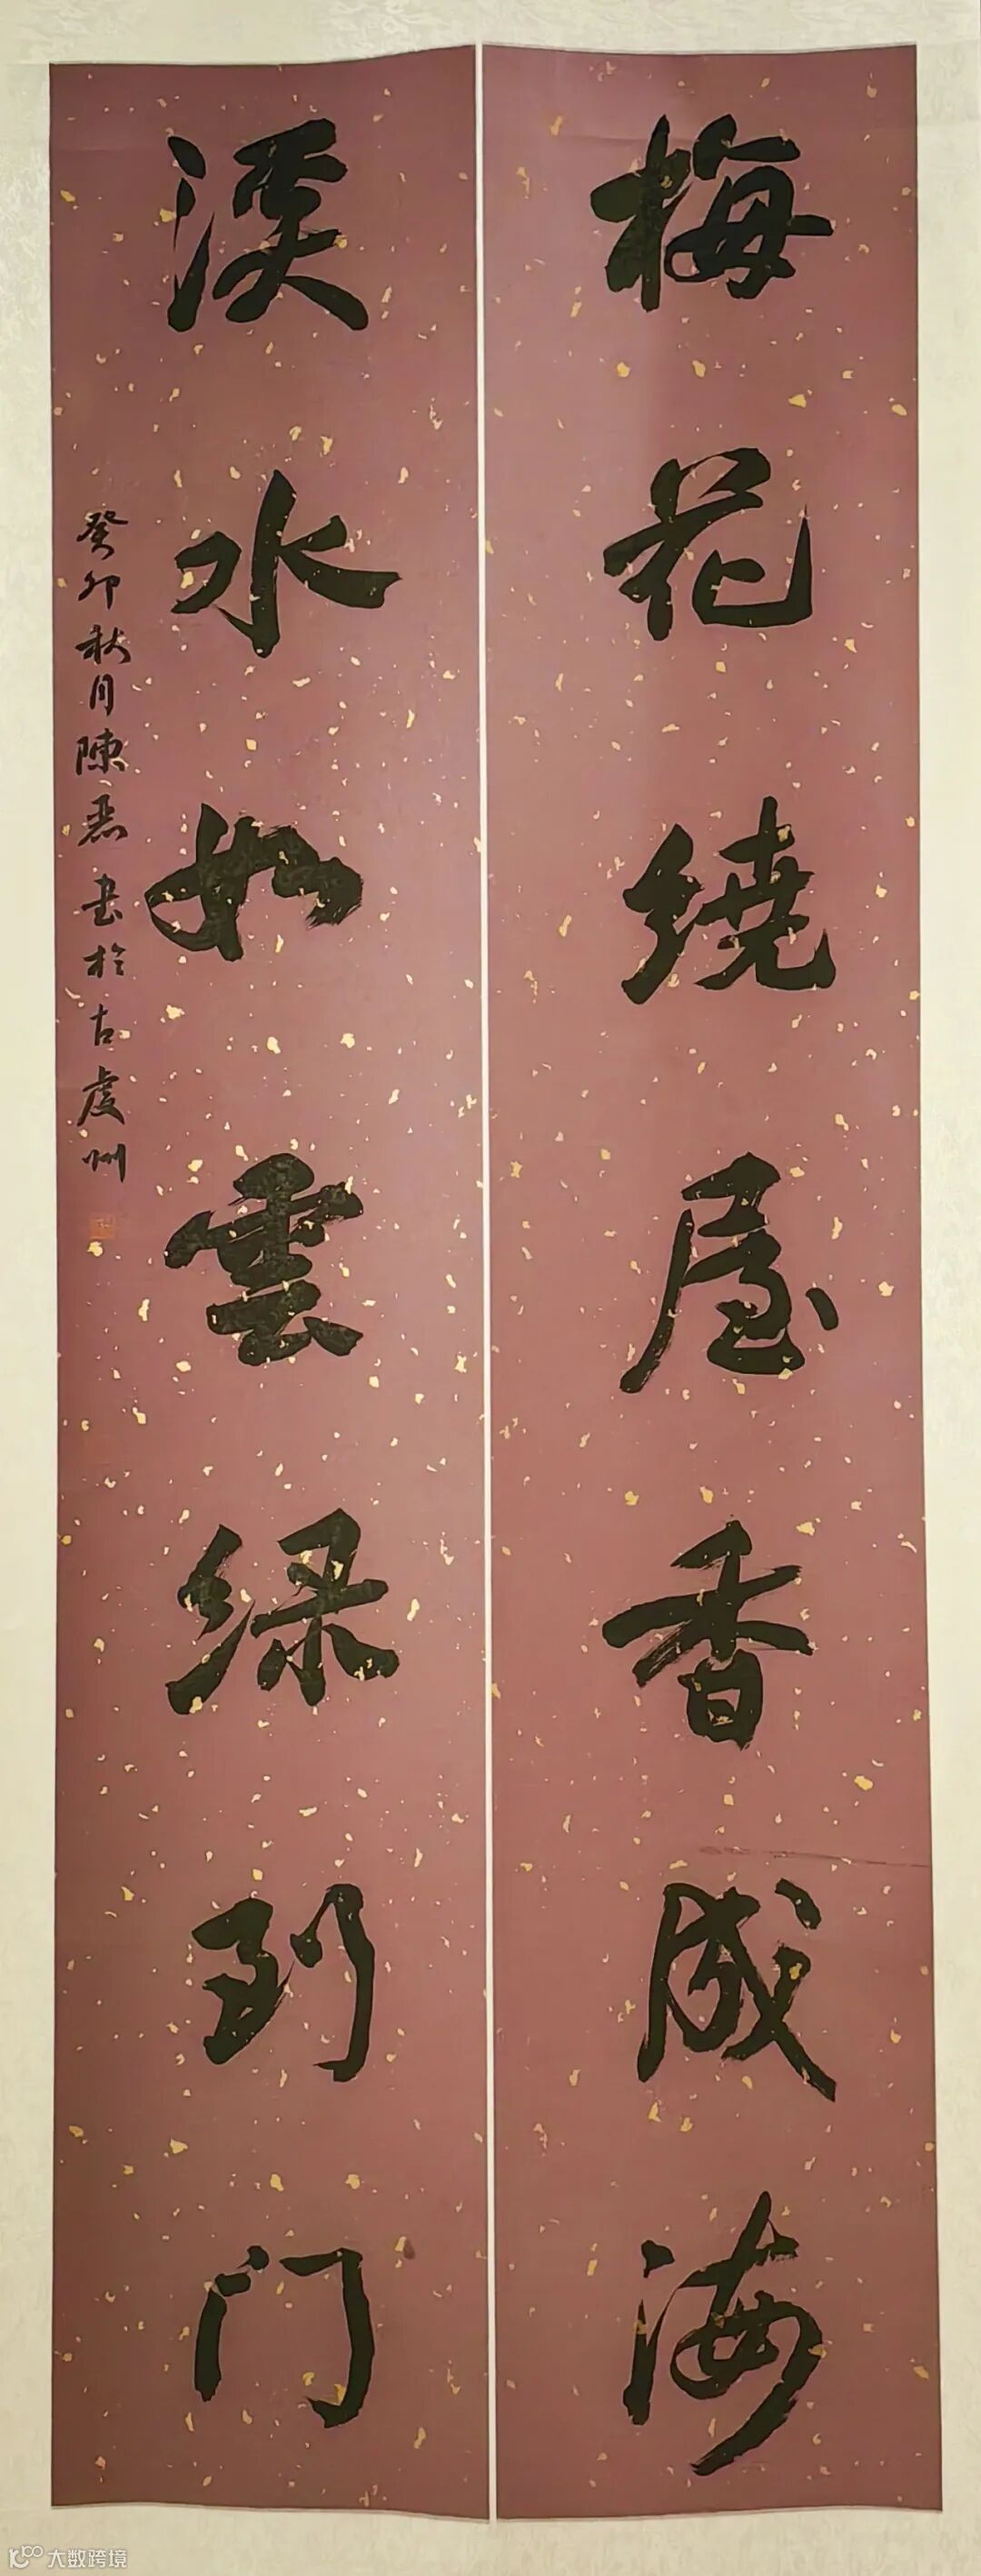 梅花繞屋香成海
溪水如雲綠到门
癸卯秋月陳書於古虔州
大数跨境